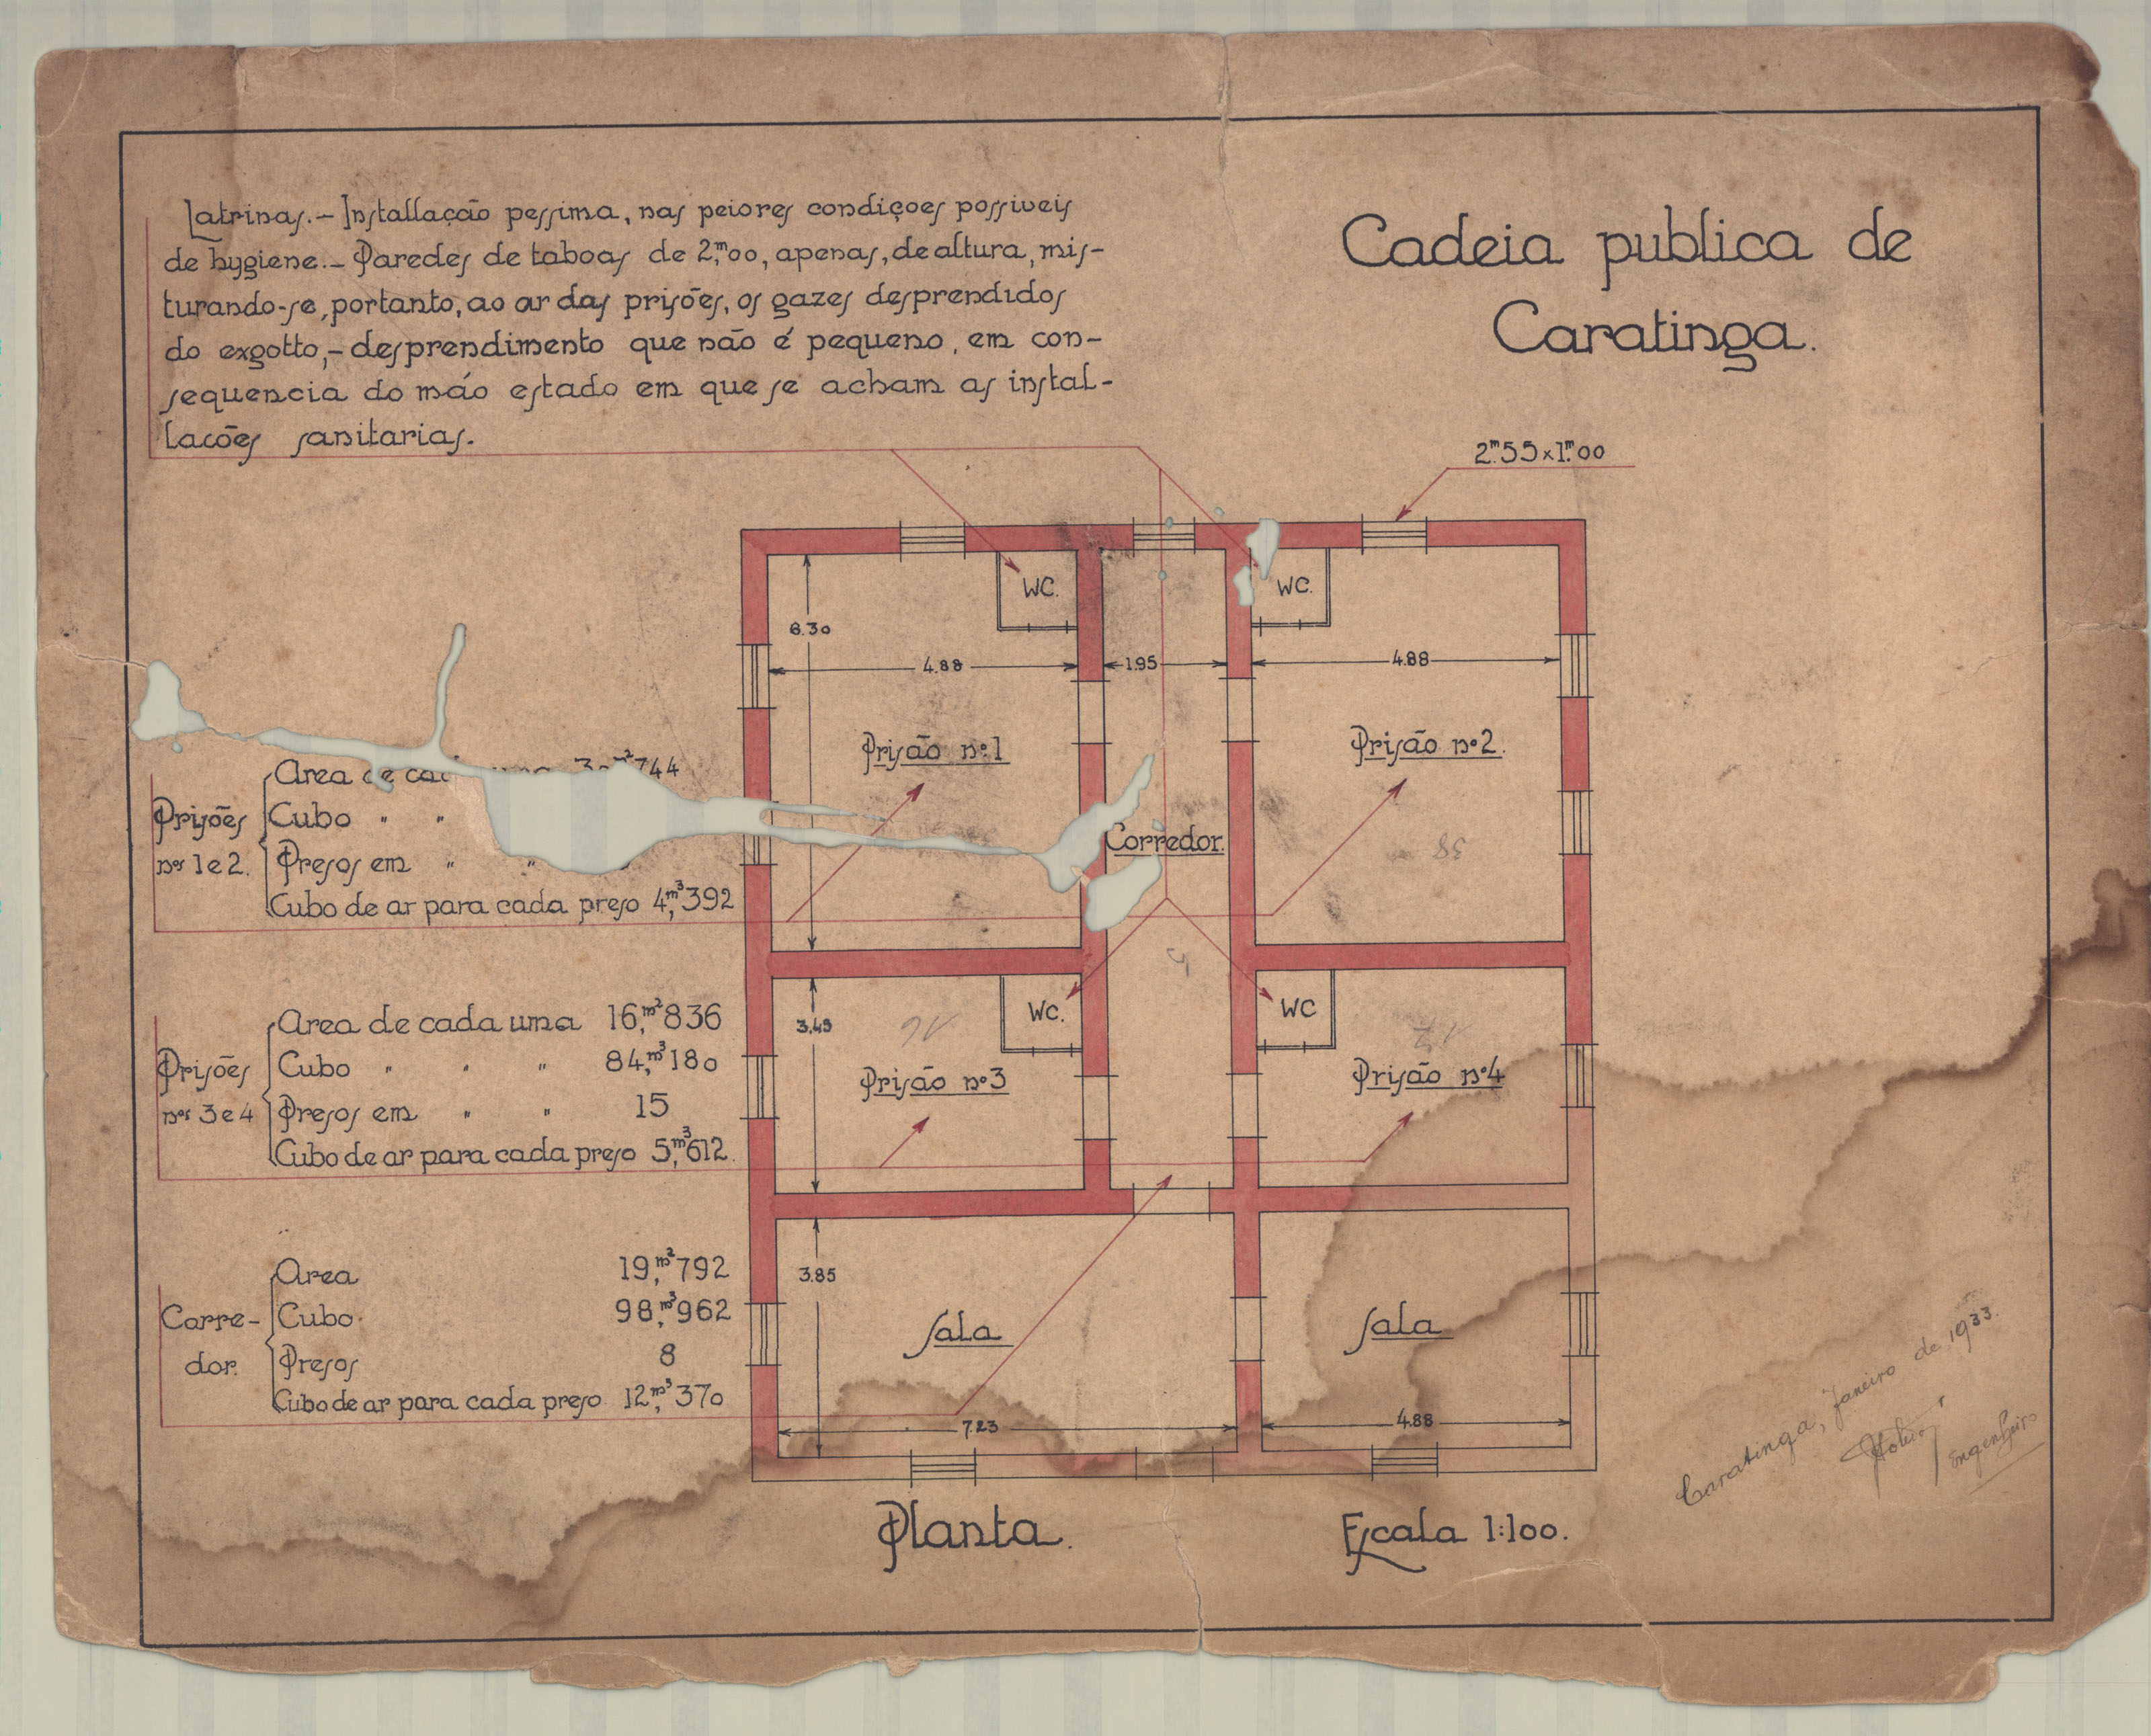 Latrinas.— Installação pessima, nas peiores condiçoes possiveis
de hygiene.— Paredes de taboas de 2,ᵐ00, apenas, de altura, mis-
turando-se, portanto, ao ar das prisões, os gazes desprendidos
do exgotto,— desprendimento que não é pequeno, em con-
sequencia do máo estado em que se acham as instal-
lacões sanitarias.
Cadeia publica de
Caratinga.
2,ᵐ55 x 1,ᵐ00
WC.
WC.
6.30
4.88
1.95
4.88
Prisão nº1
Prisão nº2.
Corredor.
38
Prisões
nºs 1 e 2.
Area de
744
Cubo " "
Presos em " "
Cubo de ar para cada preso 4,ᵐ³392
WC.
WC
3.45
16
17
Prisão nº3
Prisão nº4
5
Prisões
nºs 3 e 4
Area de cada uma 16,ᵐ²836
Cubo " " " 84,ᵐ³180
Presos em " " 15
Cubo de ar para cada preso 5,ᵐ³612.
Corre-
dor.
Area 19,ᵐ²792
Cubo 98,ᵐ³962
Presos 8
Cubo de ar para cada preso 12,ᵐ³370
3.85
Sala
Sala
7.23
4.88
Planta.
Escala 1:100.
Caratinga, Janeiro de 1933.
Engenheiro